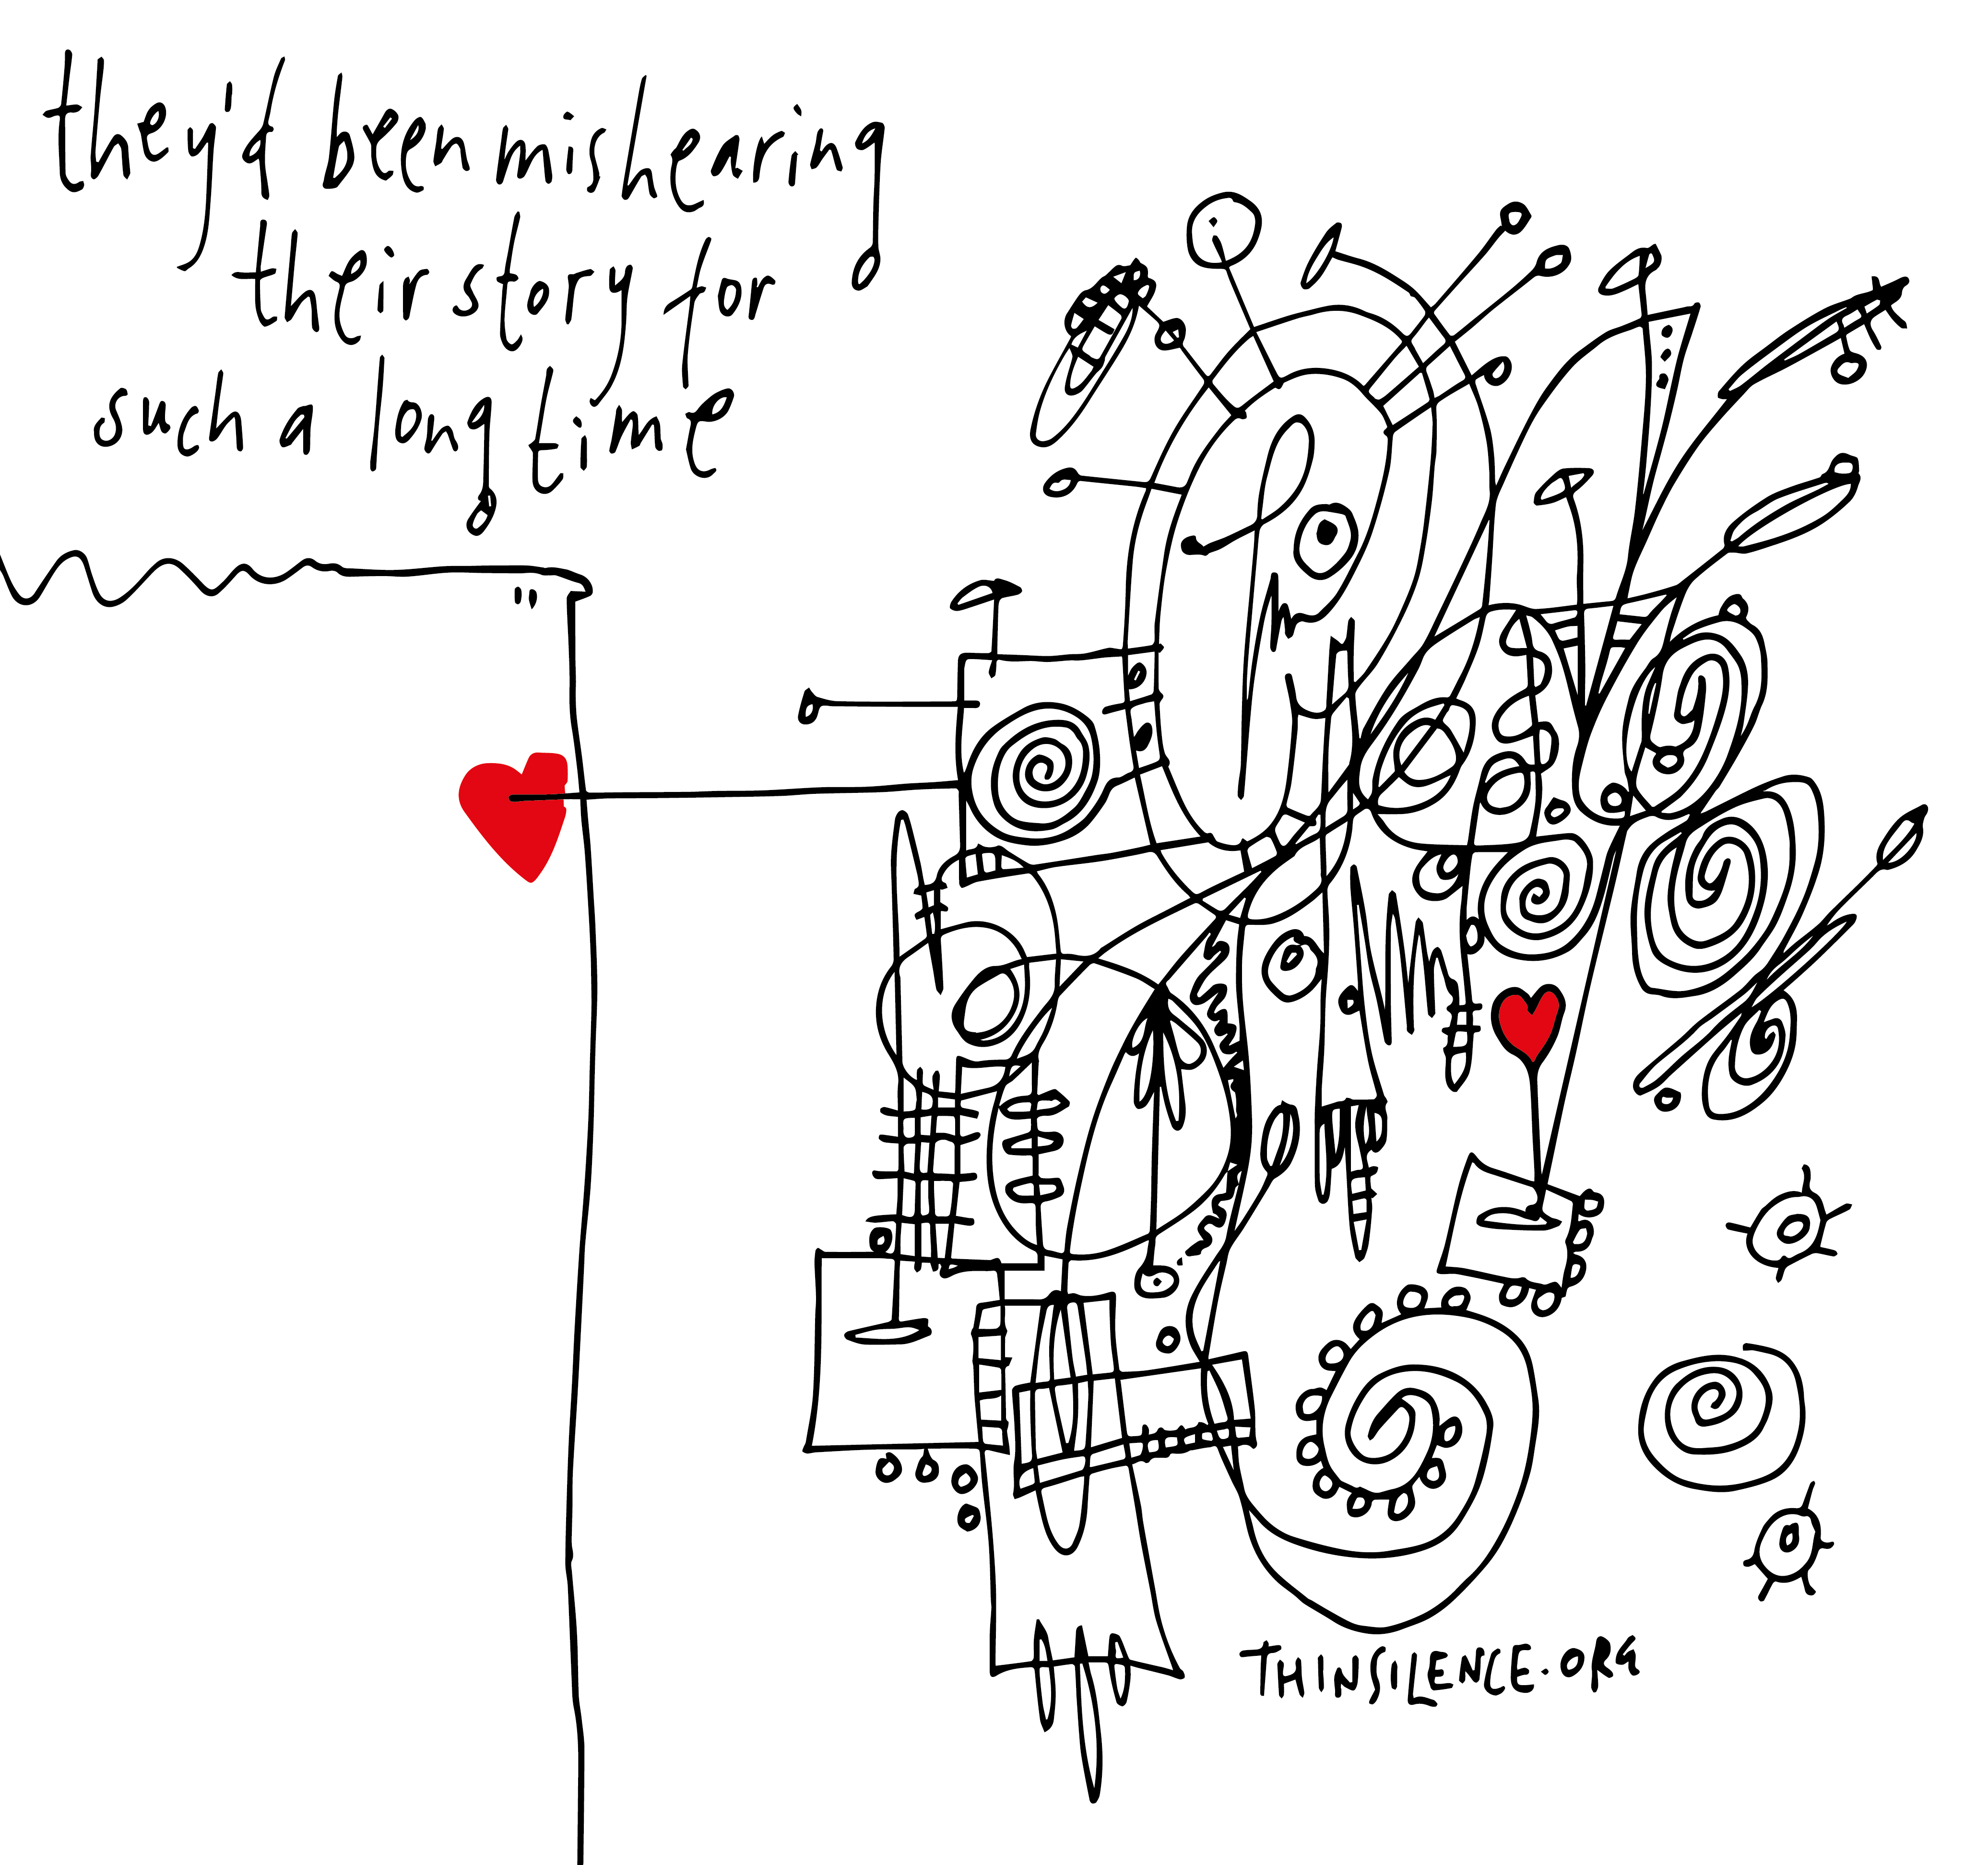 they'd been mishearing
their story for
such a long time
THINSILENCE.ORG